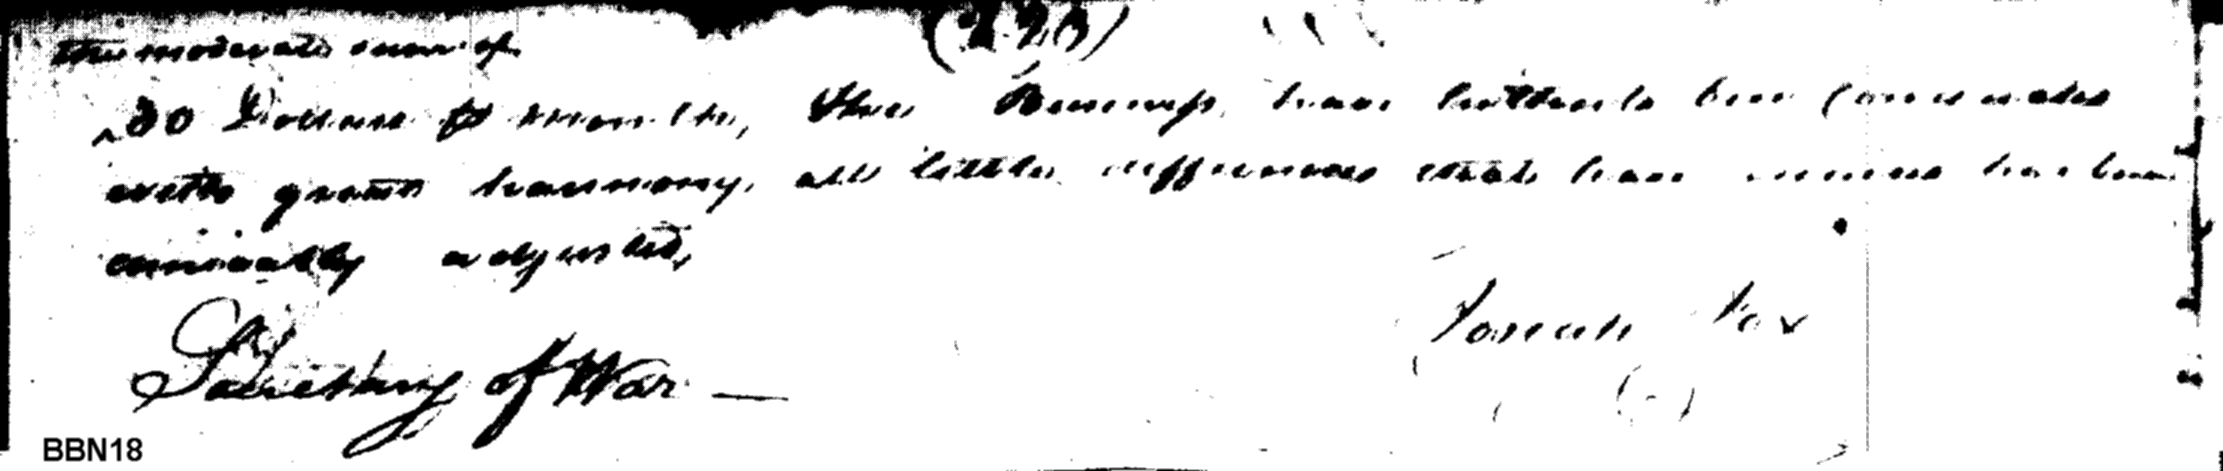 (220)
the moderate sum of
30 Dollars p month, The Business have hitherto been conducted
with great harmony, all little differences that have has been
amicably adjusted,
Josiah Fox
Secretary of War —
BBN18